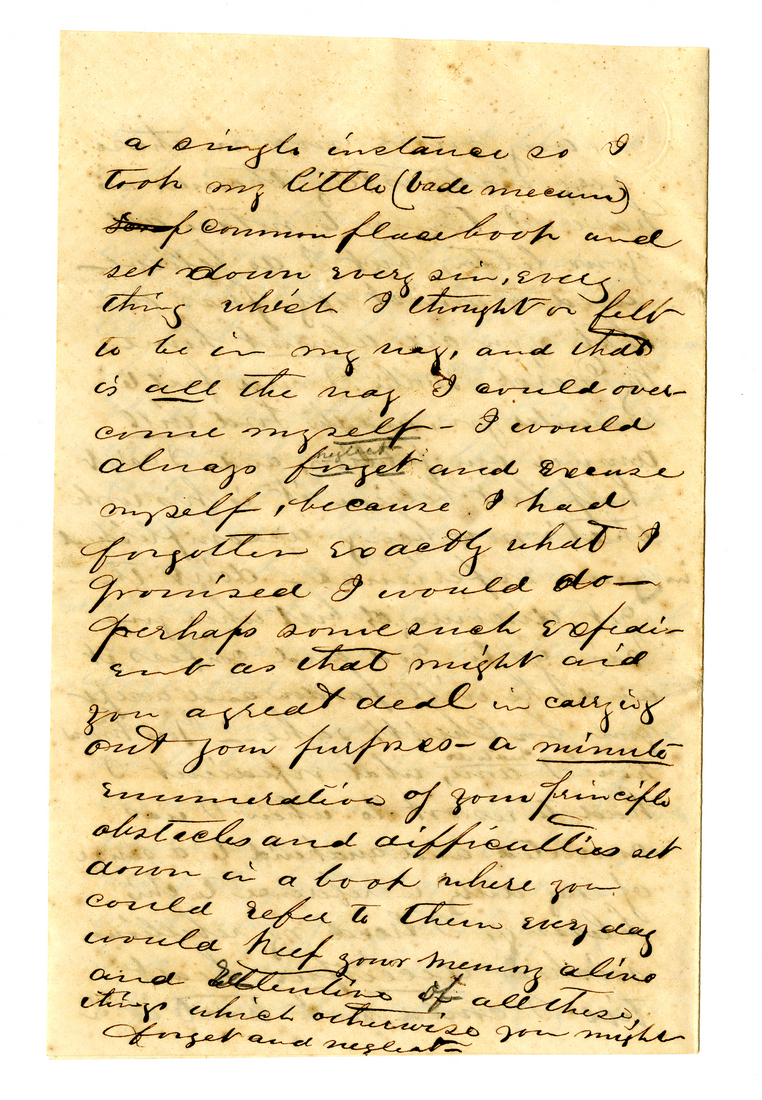 a single instance so I
took my little (vade mecum)
common place book and
set down every sin, every
thing which I thought or felt
to be in my way, and that
is all the way I could over-
come myself - I would
neglect
always forget and excuse
myself, because I had
forgotten exactly what I
promised I would do —
perhaps some such expedi-
ent as that might aid
you a great deal in carrying
out your purposes - a minute
enumeration of your principle
obstacles and difficulties set
down in a book where you
could refer to them every day
would keep your memory alive
and attentive of all these,
things which otherwise you might
forget and neglect -